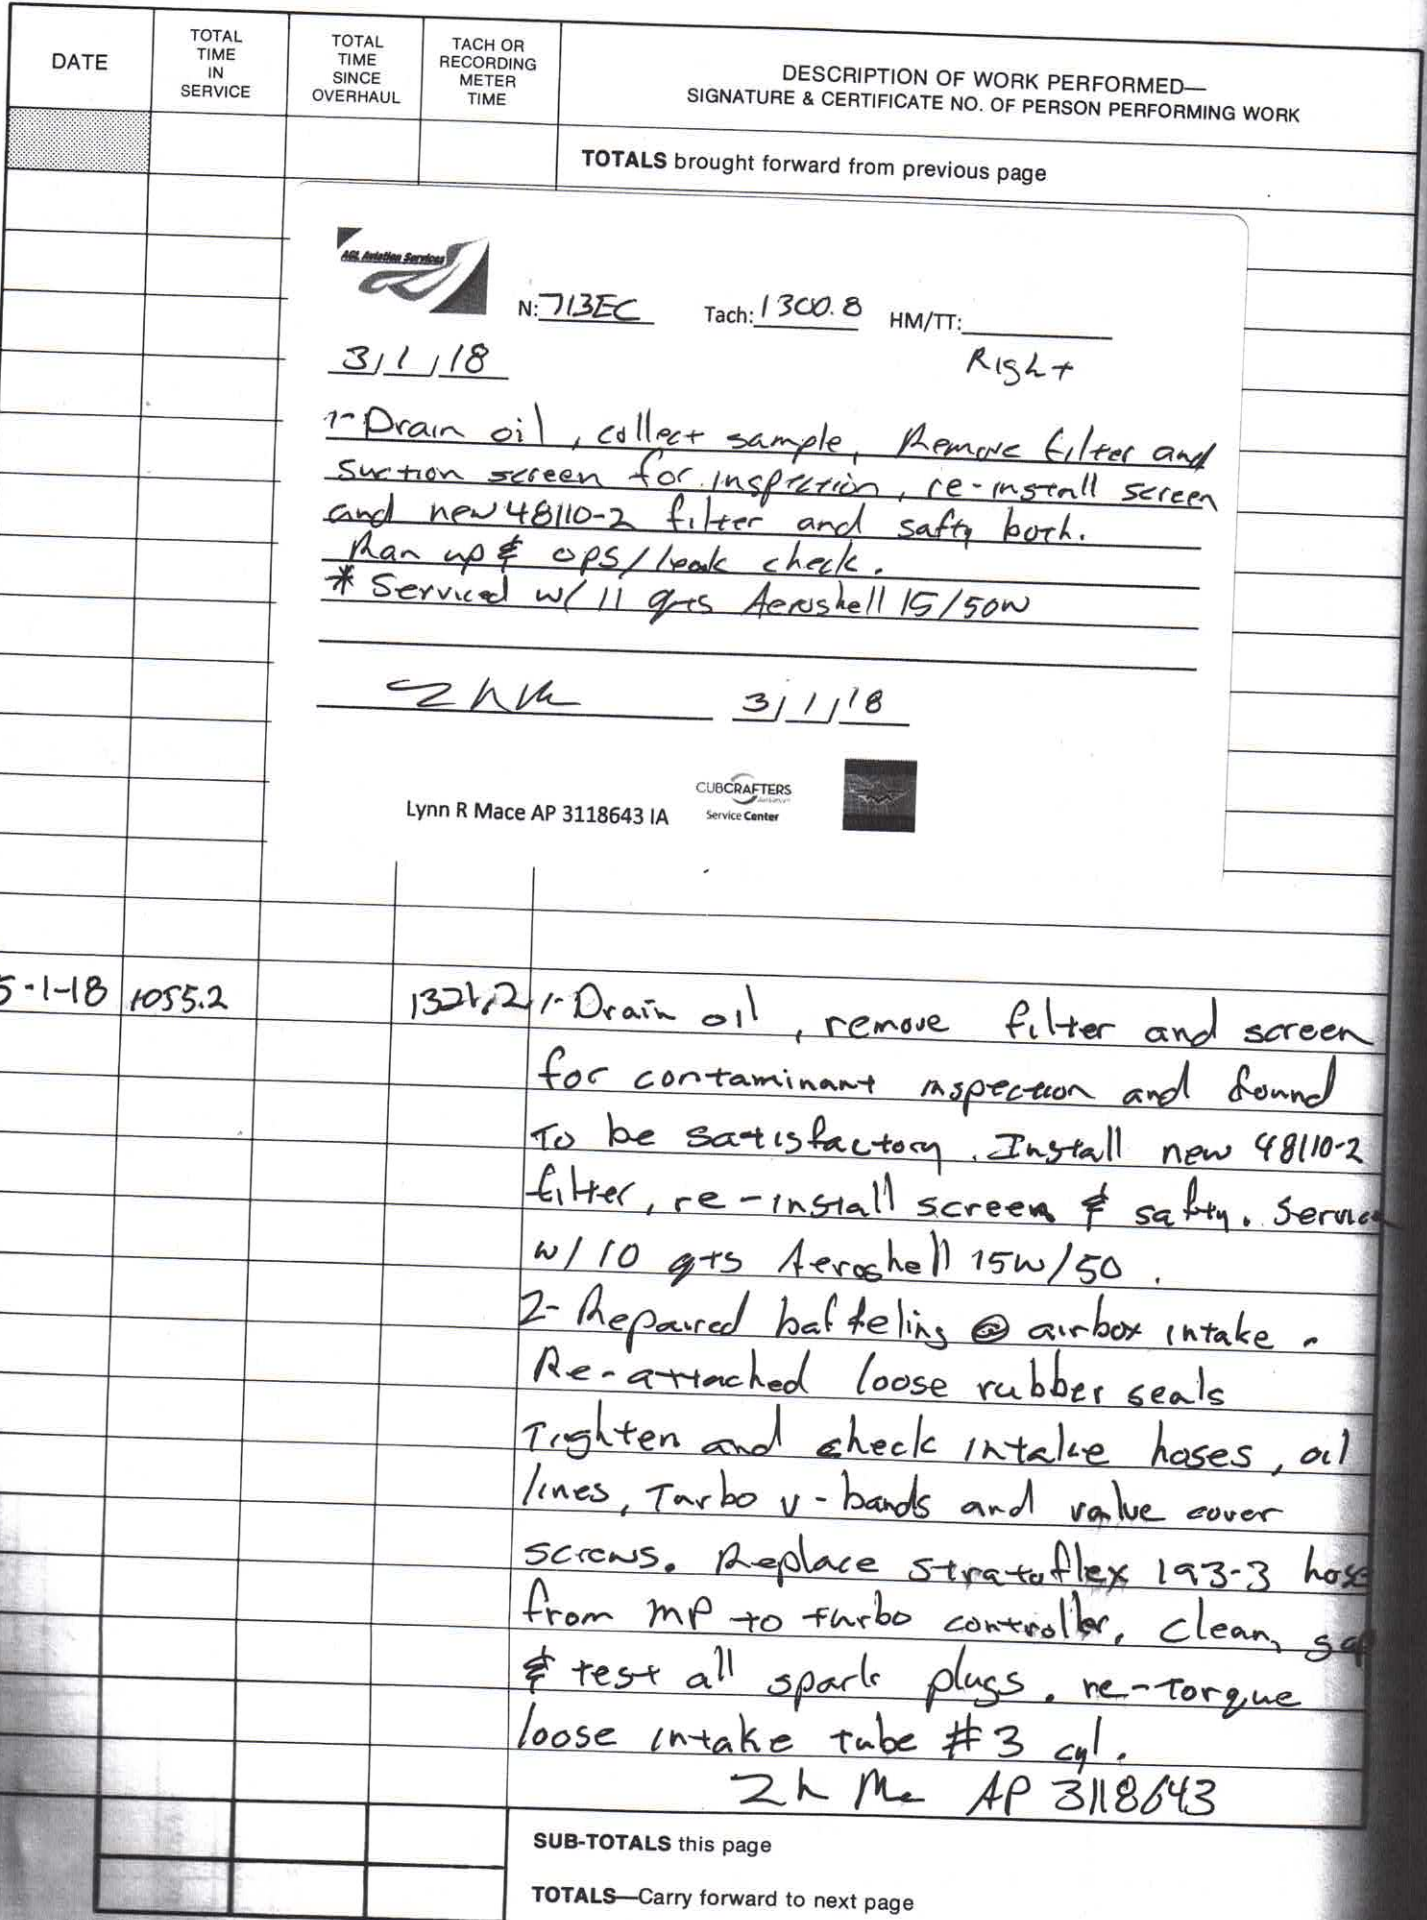 DATE
TOTAL
TIME
IN
SERVICE
TOTAL
TIME
SINCE
OVERHAUL
TACH OR
RECORDING
METER
TIME
DESCRIPTION OF WORK PERFORMED—
SIGNATURE & CERTIFICATE NO. OF PERSON PERFORMING WORK
TOTALS brought forward from previous page
AGL Aviation Services
N: 713EC Tach: 1300.8 HM/TT:
3/1/18 Right
1- Drain oil, collect sample, Remove filter and
suction screen for inspection, re-install screen
and new 48110-2 filter and safty both.
Ran up & ops/leak check.
* Serviced w/ 11 qts Aeroshell 15/50W
3/1/18
CUBCRAFTERS
Service Center
Lynn R Mace AP 3118643 IA
5-1-18 1055.2 1321.2 1- Drain oil, remove filter and screen
for contaminant inspection and found
to be satisfactory. Install new 48110-2
filter, re-install screen & safty. Service
w/ 10 qts Aeroshell 15w/50.
2- Repaired baffeling @ airbox intake.
Re-attached loose rubber seals
Tighten and check intake hoses, oil
lines, Turbo v-bands and valve cover
screws. Replace stratoflex 193-3 hose
from MP to turbo controller, clean, gap
& test all spark plugs. re-torque
loose intake tube #3 cyl.
AP 3118643
SUB-TOTALS this page
TOTALS—Carry forward to next page